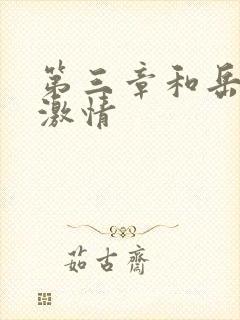 第三章和岳
激情
茹古齋